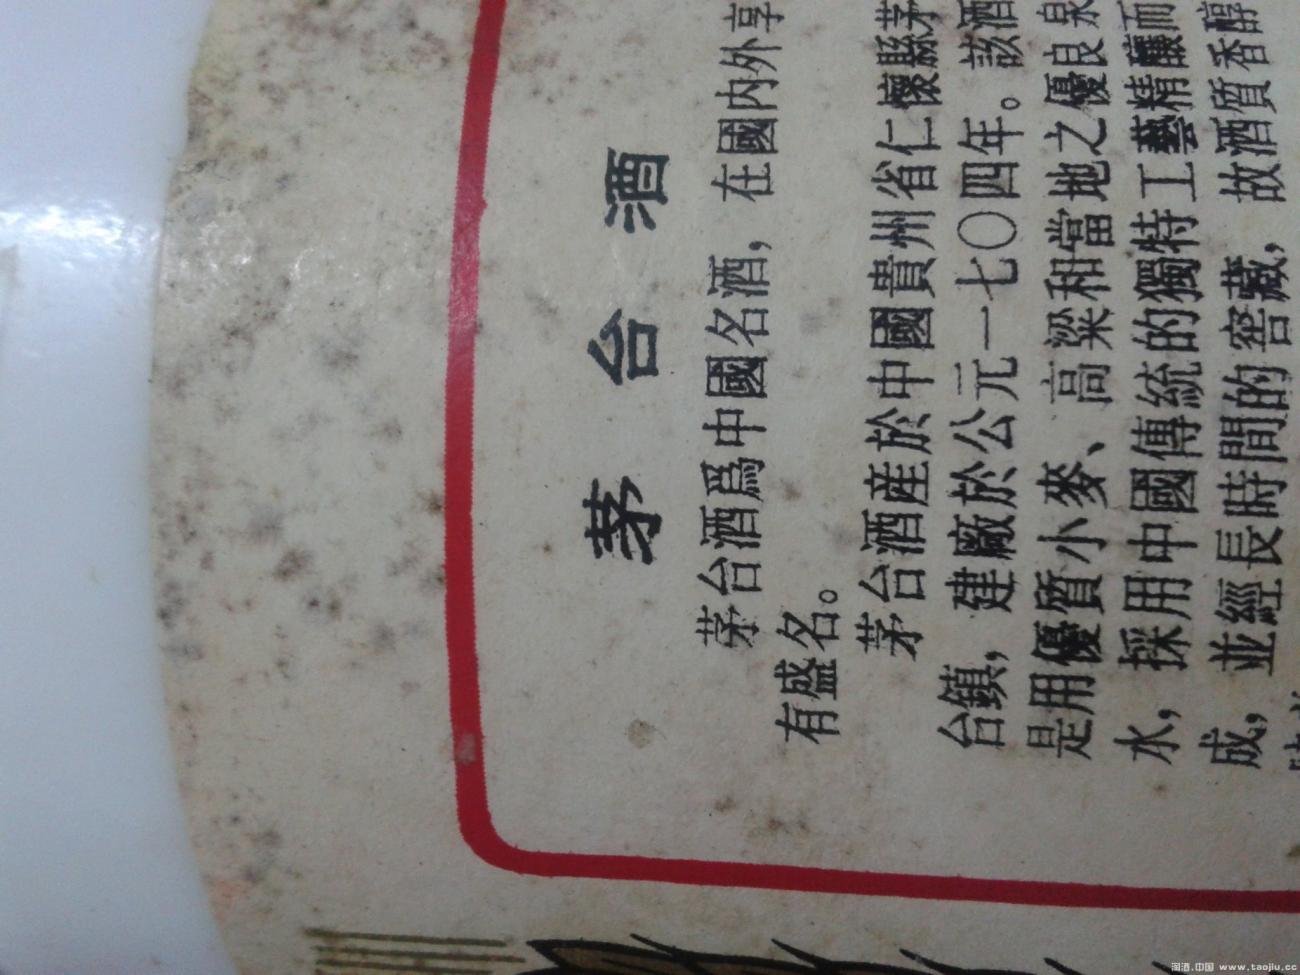 茅台酒
茅台酒爲中國名酒，在國内外享
有盛名。
茅台酒産於中國貴州省仁懷縣茅
台鎮，建廠於公元一七〇四年。該酒
是用優質小麥、高粱和當地之優良泉
水，採用中國傳統的獨特工藝精釀而
成，並經長時間的窖藏，故酒質香醇
淘酒.中国 www.taojiu.cc